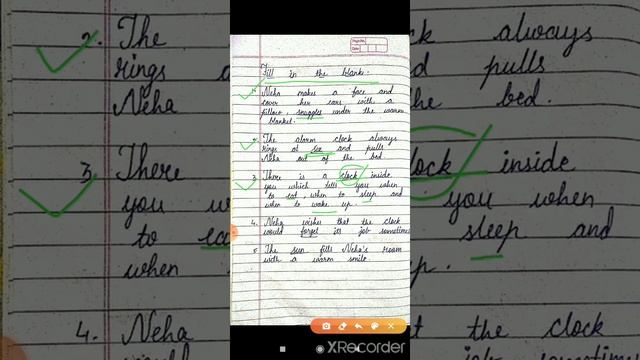 Page No.
Date
Fill in the blank.
1. Neha makes a face and
cover her ears with a
pillow, snuggles under the warm
blanket.
2. The alarm clock always
rings at six and pulls
Neha out of the bed
3. There is a clock inside
you which tells you when
to eat, when to sleep and
when to wake up.
4. Neha wishes that the clock
would forget its job sometimes
5. The sun fills Neha's room
with a warm smile.
XRecorder
2. The
rings a
Neha
3. There
you w
to ea
when
4. Neha
ck always
d pulls
he bed.
lock inside
you when
sleep and
p.
t the clock
job sometime